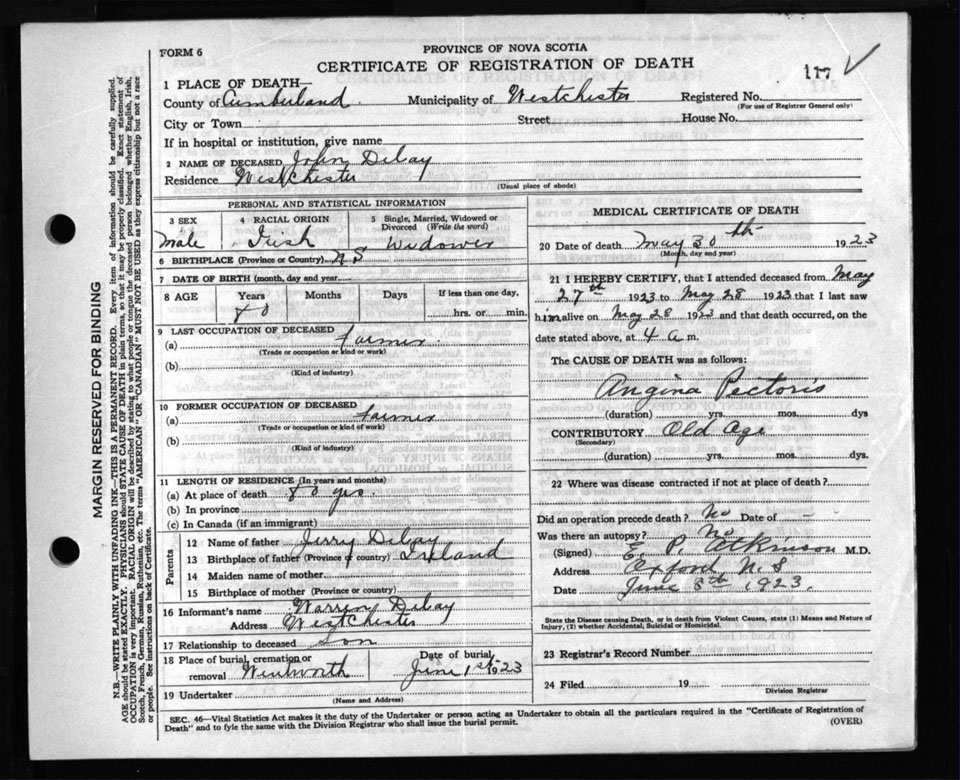 FORM 6
PROVINCE OF NOVA SCOTIA
CERTIFICATE OF REGISTRATION OF DEATH
117
1 PLACE OF DEATH—
County of Cumberland Municipality of Westchester Registered No.
(For use of Registrar General only)
City or Town Street House No.
If in hospital or institution, give name
2 NAME OF DECEASED John Delay
Residence Westchester
(Usual place of abode)
PERSONAL AND STATISTICAL INFORMATION
3 SEX 4 RACIAL ORIGIN 5 Single, Married, Widowed or Divorced (Write the word)
Male Irish Widower
6 BIRTHPLACE (Province or Country) N S
7 DATE OF BIRTH (month, day and year)
8 AGE Years Months Days If less than one day,
80 hrs. or min.
9 LAST OCCUPATION OF DECEASED
(a) Farmer
(Trade or occupation or kind or work)
(b)
(Kind of industry)
10 FORMER OCCUPATION OF DECEASED
(a) Farmer
(Trade or occupation or kind of work)
(b)
(Kind of industry)
11 LENGTH OF RESIDENCE (In years and months)
(a) At place of death 80 yrs.
(b) In province
(c) In Canada (if an immigrant)
Parents
12 Name of father Jerry Delay
13 Birthplace of father (Province or country) Ireland
14 Maiden name of mother
15 Birthplace of mother (Province or country)
16 Informant's name Warren Delay
Address Westchester
17 Relationship to deceased Son
18 Place of burial, cremation or removal Wentworth
Date of burial June 1st 1923
19 Undertaker
(Name and Address)
MEDICAL CERTIFICATE OF DEATH
20 Date of death May 30th 1923
(Month, day and year)
21 I HEREBY CERTIFY, that I attended deceased from May
27th 1923 to May 28 1923 that I last saw
him alive on May 28 1923 and that death occurred, on the
date stated above, at 4 a m.
The CAUSE OF DEATH was as follows:
Angina Pectoris
(duration) yrs. mos. dys
CONTRIBUTORY Old Age
(Secondary)
(duration) yrs. mos. dys
22 Where was disease contracted if not at place of death?
Did an operation precede death? No Date of —
Was there an autopsy? No
(Signed) E. P. Atkinson M.D.
Address Oxford N. S
Date June 8th 1923.
State the Disease causing Death, or in death from Violent Causes, state (1) Means and Nature of
Injury, (2) whether Accidental, Suicidal or Homicidal.
23 Registrar's Record Number
24 Filed 19
Division Registrar
SEC. 46—Vital Statistics Act makes it the duty of the Undertaker or person acting as Undertaker to obtain all the particulars required in the "Certificate of Registration of
Death" and to fyle the same with the Division Registrar who shall issue the burial permit.
(OVER)
MARGIN RESERVED FOR BINDING
N.B.—WRITE PLAINLY WITH UNFADING INK—THIS IS A PERMANENT RECORD. Every item of information should be carefully supplied.
AGE should be stated EXACTLY. PHYSICIANS should STATE CAUSE OF DEATH in plain terms, so that it may be properly classified. Exact statement of
OCCUPATION is very important. RACIAL ORIGIN will be described by stating to what people or tongue the deceased person belonged whether English, Irish,
Scotch, French, German, Russian, Ruthenian, etc. The terms "AMERICAN" or "CANADIAN" MUST NOT BE USED as they express citizenship but not a race
or people. See instructions on back of Certificate.